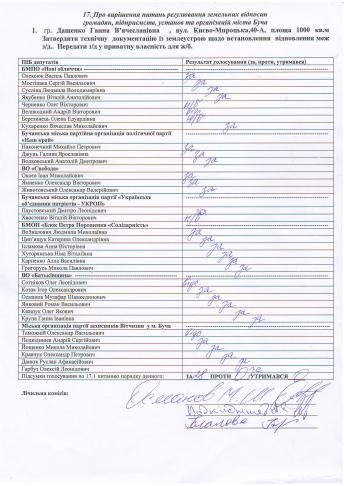 17. Про вирішення питань регулювання земельних відносин
громадян, підприємств, установ та організацій міста Буча
1. гр. Даценко Ганна В'ячеславівна , вул. Києво-Мироцька,40-А, площа 1000 кв.м
Затвердити технічну документацію із землеустрою щодо встановлення відновлення меж
з/д. Передати з/д у приватну власність для ж/б.
ПІБ депутатів Результат голосування (за, проти, утримався)
БМПО «Нові обличчя»
Олексюк Василь Павлович за
Мостіпака Сергій Васильович за
Суслова Людмила Володимирівна за
Якубенко Віталій Анатолійович за
Черненко Олег Вікторович
Великодний Андрій Вікторович
Березинець Олена Едуардівна
Кухаренко Вячеслав Миколайович за
Бучанська міська партійна організація політичної партії
«Наш край»
Наконечний Михайло Петрович за
Джунь Галина Ярославівна за
Волковський Анатолій Дмитрович за
ВО «Свобода»
Окоєв Іван Миколайович за
Яхненко Олександр Вікторович за
Животовський Олександр Валерійович за
Бучанська міська організація партії «Українське
об'єднання патріотів - УКРОП»
Паустовський Дмитро Леонідович за
Хвостенко Віталій Вікторович
БМОП «Блок Петра Порошенка «Солідарність»
Безжаліцюк Людмила Миколаївна за
Цип'ящук Катерина Олександрівна за
Іслamова Анна Вікторівна за
Хуторянська Ніна Віталіївна за
Карпенко Алла Василівна за
Григорук Микола Павлович за
ВО «Батьківщина»
Сотніков Олег Леонідович
Котах Ігор Олександрович за
Османов Музафар Шамсодинович за
Янковий Роман Васильович за
Квашук Олег Якович за
Крупа Ганна Іванівна за
Міська організація партії захисників Вітчизни у м. Буча
Таможній Олександр Васильович
Подкідишев Андрій Сергійович за
Йощенко Микола Миколайович за
Кравчук Олександр Петрович за
Данюк Руслан Афанасійович за
Гарбуз Олексій Леонідович за
Підсумки голосування по 17.1 питанню порядку денного: ЗА 28 ПРОТИ УТРИМАВСЯ
Лічильна комісія: Османов М. Ш.